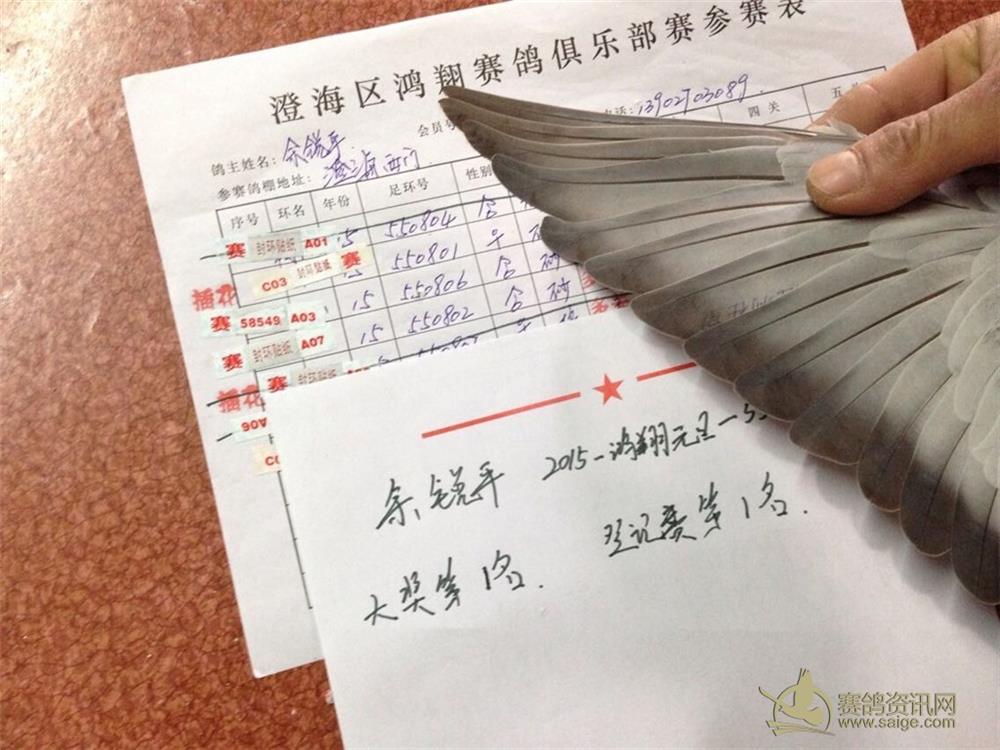 澄海区鸿翔赛鸽俱乐部赛参赛表
鸽主姓名: 余锐平 会员号 电话: 13902703089
参赛鸽棚地址: 澄海西门
序号 环名 年份 足环号 性别 四关 五
赛 封环贴纸 A01 15 550804 合
C03 封环贴纸 赛 550801
插花 15 550806 合
赛 58549 A03 15 550802 合
赛 封环贴纸 A07
插花 赛 封环贴纸
90V
余锐平 2015-鸿翔元
登记赛第1名.
大奖第1名.
赛鸽资讯网
www.saige.com